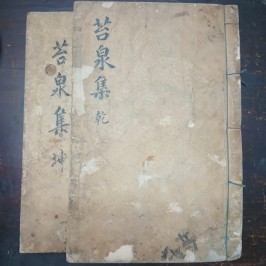 苔泉集 乾
苔泉集 坤